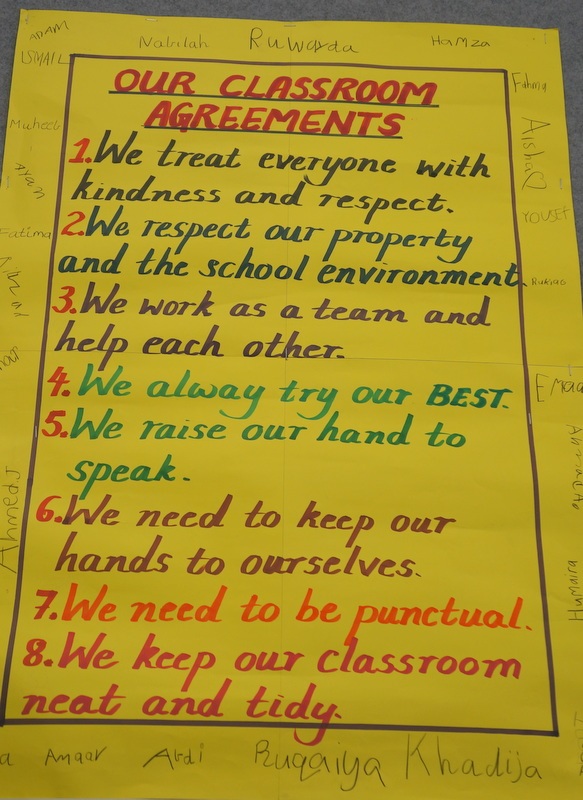 ADAM
ISMAIL
Nabilah
Ruwayda
HaMza
Fahma
Muheeb
Aisha
Ayaan
YOUSEF
Fatima
OUR CLASSROOM
AGREEMENTS
1.We treat everyone with
kindness and respect.
2.We respect our property
and the school environment.
3.We work as a team and
help each other.
4.We alway try our BEST.
5.We raise our hand to
speak.
6.We need to keep our
hands to ourselves.
7.We need to be punctual.
8.We keep our classroom
neat and tidy.
Ahmed J
Amaar
Abdi
Ruqaiya
Khadija